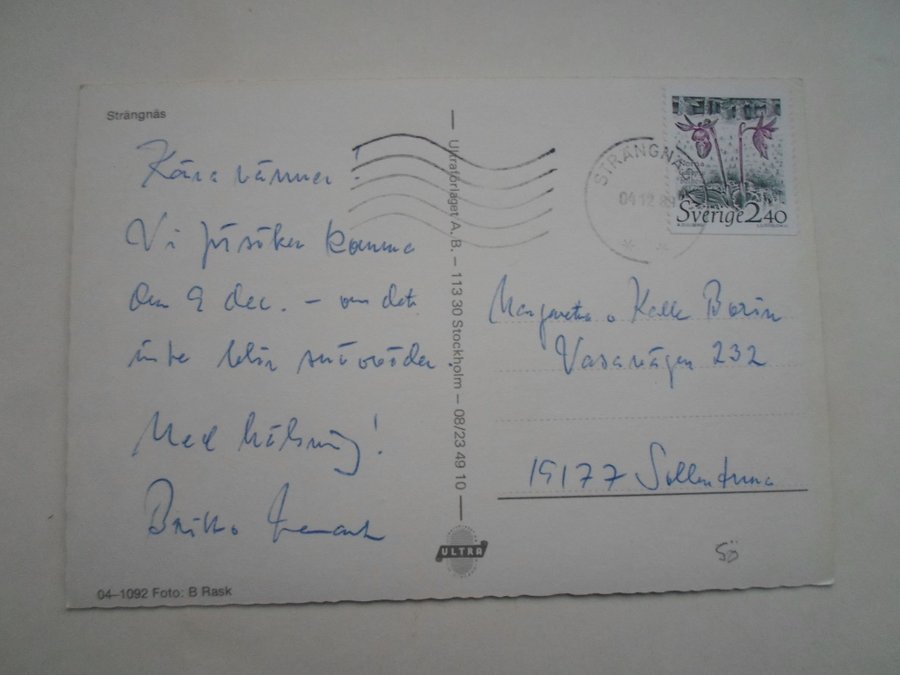 Strängnäs
Kära vänner!
Vi försöker komma
den 9 dec. – om det
inte blir snöväder.
Med hälsning!
Britta
Ultraförlaget A.B. – 113 30 Stockholm – 08/23 49 10
ULTRA
04–1092 Foto: B Rask
STRÄNGNÄS
04 12 89
Sverige 2.40
Margareta o Kalle Borin
Vasavägen 232
19177 Sollentuna
50